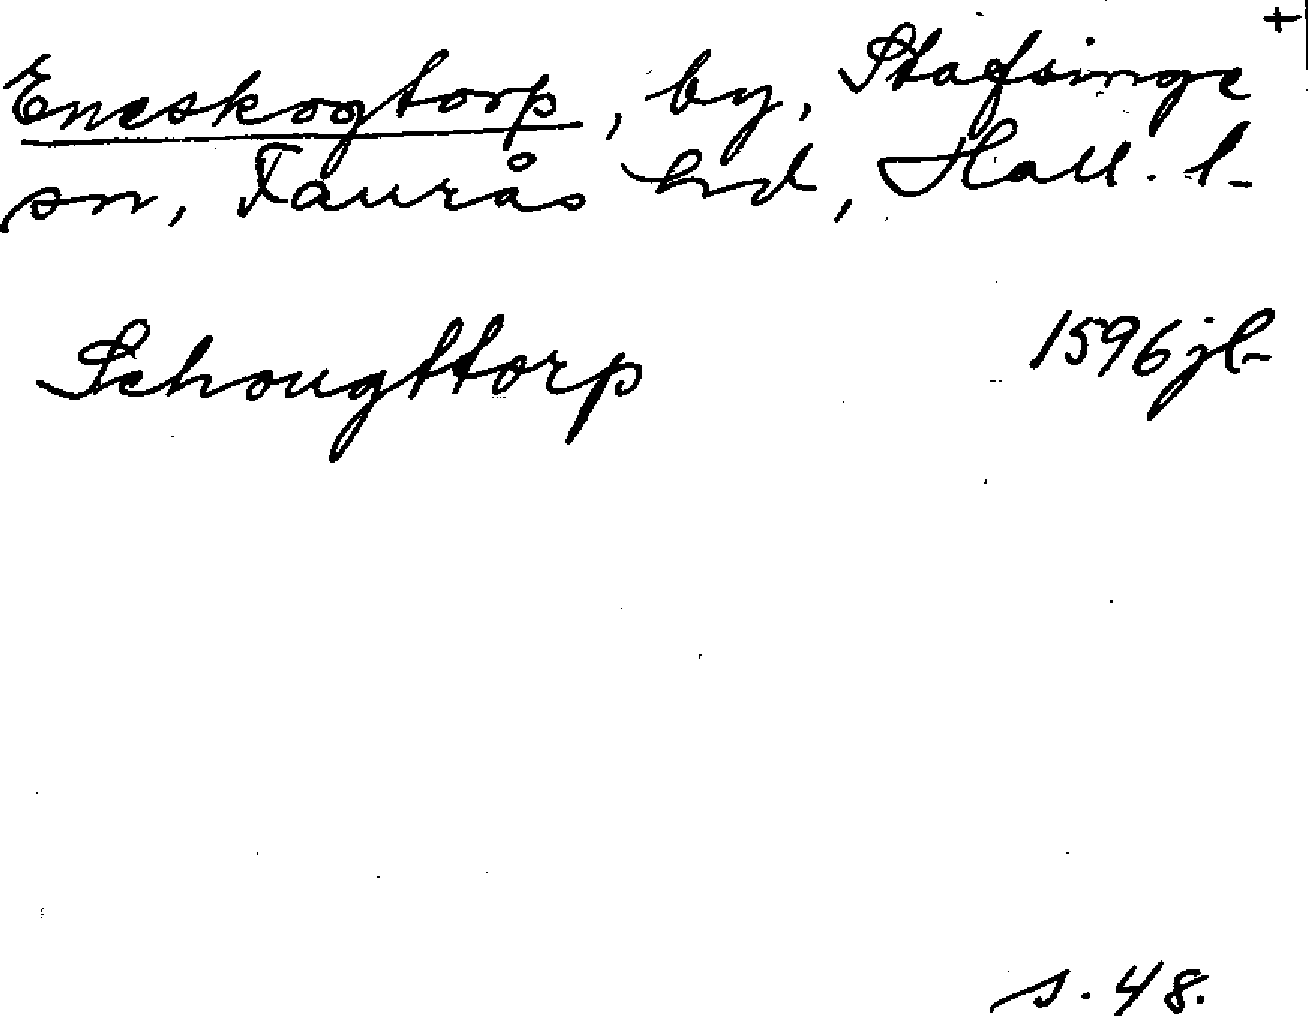 +
Eneskogtorp, by, Stafsinge
sn, Faurås hd, Hall. l.
Schougttorp 1596 jb.
s. 48.